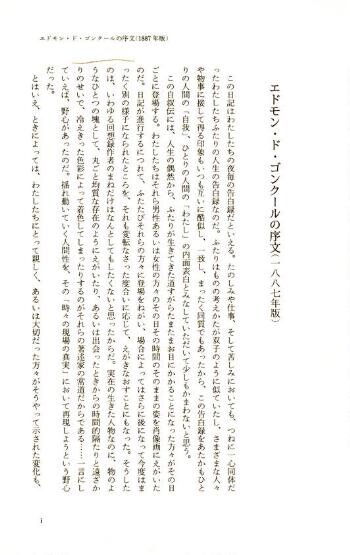 エドモン・ド・ゴンクールの序文(1887年版)
エドモン・ド・ゴンクールの序文(一八八七年版)
この日記はわたしたちの夜毎の告白録だといえる。たのしみや仕事、そして苦しみにおいても、つねに一心同体だ
ったわたしたちふたりの人生の告白録なのだ。ふたりはものの考えかたが双子のように似ていたし、さまざまな人々
や物事に接して得る印象もいつも互いに酷似し、一致し、まったく同質でもあったから、この告白録をあたかもひと
りの人間の「自我」、ひとりの人間の「わたし」の内面表白とみなしていただいて少しもかまわないと思う。
この自叙伝には、人生の偶然から、ふたりが生きてきた道すがらたまたまお目にかかることになった方々がその日
ごとに登場する。わたしたちはそれら男性あるいは女性の方々のその日その時間のそのままの姿を肖像画にえがいた
のだ。日記が進行するにつれて、ふたたびそれらの方々に登場をねがい、場合によってはさらに後になって今度はま
ったく別の様子になられたところを、それも変転なさった度合いに応じて、えがきなおすことにもなった。そうした
のは、いわゆる回想録作者のまねだけはなんとしてもしたくないと思ったからだ。実在の生きた人物なのに、物のよ
うなひとつの塊として、丸ごと均質な存在のようにえがいたり、あるいは出会ったときからの時間的隔たりと遠ざか
りのせいで、冷えきった色彩によって着色してしまったりするのがそれらの著述家の常道だからである……一言にし
ていえば、野心があったのだ。揺れ動いていく人間性を、その「時々の現場の真実」において再現しようという野心
だった。
とはいえ、ときによっては、わたしたちにとって親しく、あるいは大切だった方々がそうやって示された変化も、
i